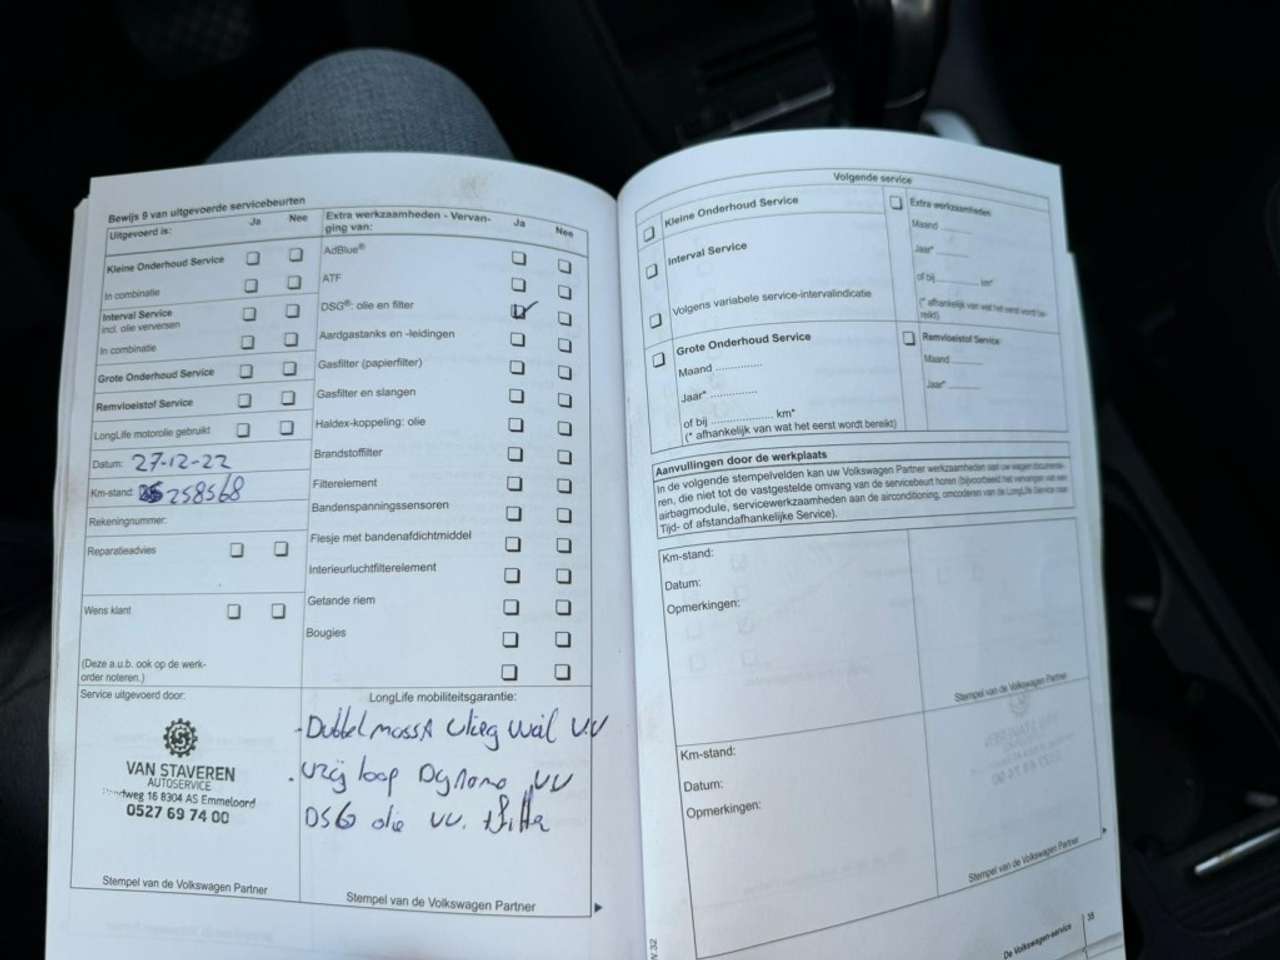 Bewijs 9 van uitgevoerde servicebeurten
Uitgevoerd is:
Ja
Nee
Kleine Onderhoud Service
In combinatie
Interval Service
incl. olie verversen
In combinatie
Grote Onderhoud Service
Remvloeistof Service
LongLife motorolie gebruikt
Datum: 27-12-22
Km-stand: 258568
Rekeningnummer:
Reparatieadvies
Wens klant
(Deze a.u.b. ook op de werk-
order noteren.)
Extra werkzaamheden - Vervan-
ging van:
Ja
Nee
AdBlue®
ATF
DSG®: olie en filter
Aardgastanks en -leidingen
Gasfilter (papierfilter)
Gasfilter en slangen
Haldex-koppeling: olie
Brandstoffilter
Filterelement
Bandenspanningssensoren
Flesje met bandenafdichtmiddel
Interieurluchtfilterelement
Getande riem
Bougies
Service uitgevoerd door:
VAN STAVEREN
AUTOSERVICE
16 8304 AS Emmeloord
0527 69 74 00
Stempel van de Volkswagen Partner
LongLife mobiliteitsgarantie:
- Dubbel massa vlieg wiel v.v
- vrij loop Dynamo vv
DSG olie vv. +
Stempel van de Volkswagen Partner
Volgende service
Kleine Onderhoud Service
Interval Service
Volgens variabele service-intervalindicatie
Grote Onderhoud Service
Maand ..............
Jaar* ..............
of bij .................... km*
(* afhankelijk van wat het eerst wordt bereikt)
Extra werkzaamheden
Maand
Jaar*
of bij km*
(* afhankelijk van wat het eerst wordt be-
reikt)
Remvloeistof Service
Maand
Jaar*
Aanvullingen door de werkplaats
In de volgende stempelvelden kan uw Volkswagen Partner werkzaamheden aan uw wagen documente-
ren, die niet tot de vastgestelde omvang van de servicebeurt horen (bijvoorbeeld het vervangen van een
airbagmodule, servicewerkzaamheden aan de airconditioning, omcoderen van de LongLife Service naar
Tijd- of afstandafhankelijke Service).
Km-stand:
Datum:
Opmerkingen:
Stempel van de Volkswagen Partner
Km-stand:
Datum:
Opmerkingen:
Stempel van de Volkswagen Partner
De Volkswagen-service
35